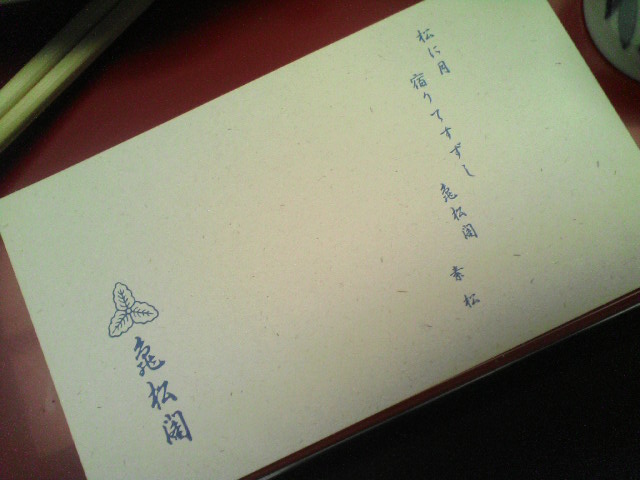 松に月
宿りてすずし
亀松閣
素松
亀松閣